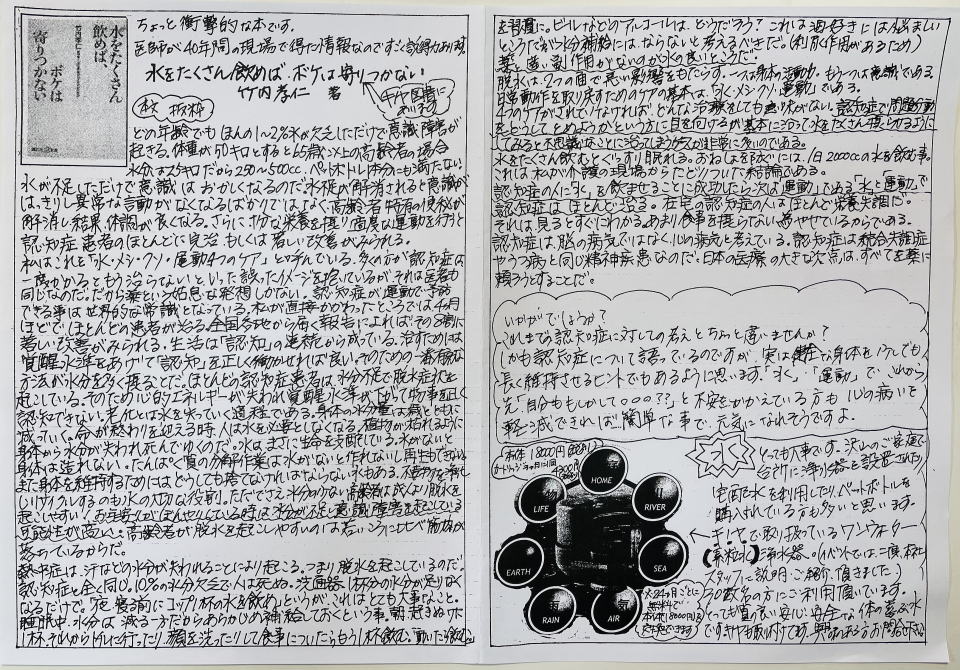 水をたくさん
飲めば、
ボケは
寄りつかない
竹内孝仁
ちょっと衝撃的な本です。
医師が40年間の現場で得た情報なのですごく説得力あります。
水をたくさん飲めば、ボケは寄りつかない
竹内孝仁 著
キヤ図書に
あります
本文 抜粋
どの年齢でもほんの1〜2%水が欠乏しただけで意識障害が
起きる。体重が50キロとすると65歳以上の高齢者の場合
水分は25キロだから250〜500cc、ペットボトル1本分にも満たない
水が不足しただけで意識はおかしくなるのだ。水不足が解消されると意識が
はっきりし異常な言動がなくなるばかりではなく高齢者特有の便秘が
解消し結果、体調が良くなる。さらに十分な栄養を摂り適度な運動を行うと
認知症患者のほとんどに完治もしくは著しい改善がみられる。
私はこれを「水・メシ・クソ・運動4つのケア」と呼んでいる。多くの方が認知症は
一度かかるともう治らないといった誤ったイメージを抱いているが、それは医者も
同じなのだ。だから薬という姑息な発想しかない。認知症が運動で予防
できる事は世界的な常識となっている。私が直接かかわったところでは4ヵ月
ほどでほとんどの患者が治る。全国各地から届く報告によればその8割に
著しい改善がみられる。生活は「認知」の連続から成っている。治すためには
覚醒水準をあげて「認知」を正しく働かせれば良い。そのための一番簡単な
方法が水分を多く摂ることだ。ほとんどの認知症患者は、水分不足で脱水症状を
起こしている。そのため心的エネルギーが失われ覚醒水準が下がって物事を正しく
認知できない。老化とは水を失っていく過程である。身体の水分量は歳とともに
減っていく。命が終わりを迎える時、人は水を必要としなくなる。植物が枯れるように
身体から水分が失われ死んでゆくのだ。水はまさに生命を支配している。水がないと
身体は造れない。たんぱく質の分解作業は水がないと作れないし再生もできない。
また身体を維持するためにはどうしても捨てなければならない水もある。不要物を
リサイクルするのも水の大切な役割。ただでさえ水分の少ない高齢者は成人より脱水を
起こしやすい。お年寄りがぼんやりしている時は水分が不足し意識障害を起こしている
可能性が高い。高齢者が脱水を起こしやすいのは若いころにくらべ筋肉が
落ちているからだ。
熱中症は、汗などの水分が失われることにより起こる。つまり脱水を起こしているのだ。
認知症と全く同じ。10%の水分欠乏で人は死ぬ。洗面器1杯分の水分が足りなく
なるだけで。「夜寝る前にコップ1杯の水を飲め」というがこれはとても大事なこと。
睡眠中、水分は減る一方だからあらかじめ補給しておくという事。朝、起きぬけに
1杯、それからトイレに行ったり顔を洗ったりして食事についたらもう1杯飲む。動いたら飲む
を習慣に。ビールなどのアルコールは、どうだろう?これは酒好きには悩ましい
ところだが水分補給にはならないと考えるべきだ。(利尿作用があるため)
薬と違い副作用がないのが水の良いところだ。
脱水は、2つの面で悪い影響をもたらす。一つは身体の活動力。もう一つは意識である。
日常動作を取り戻すためのケアの基本は、「水・メシ・クソ・運動」である。
4つのケアがされていなければ、どんな治療をしても意味がない。認知症で問題行動
をどうしてとめようかという方に目を向けるが基本に沿って水をたくさん摂られるように
してみると不思議なことに治ってしまうケースが非常に多いのである。
水をたくさん飲むとぐっすり眠れる。おねしょを防ぐには、1日2000ccの水を飲む事。
これは私が介護の現場からたどりついた結論である。
認知症の人に「水」を飲ませることに成功したら次は「運動」である「水と運動」で
認知症はほとんど治る。在宅の認知症の人はほとんど栄養失調だ。
それは、見るとすぐにわかる。あまり食事を摂らないからやせているからである。
認知症は、脳の病気ではなく、心の病気と考えている。認知症は統合失調症
やうつ病と同じ精神疾患なのだ。日本の医療の大きな欠点は、すべてを薬に
頼ろうとすることだ。
いかがでしょうか?
これまでの認知症に対しての考えとちょっと違いませんか?
しかも認知症について語っているのですが、実は健全な身体を1才でも
長く維持させるヒントでもあるように思います。「水」、「運動」で、これから
先「自分ももしかして○○○??」と不安をかかえている方も心の病いを
軽減できれば、簡単な事で、元気になれそうですよ。
本体18000円(税別)
カートリッジ1ヶ月に1回
HOME
LIFE
RIVER
EARTH
SEA
RAIN
AIR
水
とっても大事です。沢山のご家庭で
台所に浄水器を設置されたり
宅配水を利用したり、ペットボトルを
購入されている方も多いと思います。
キヤで取り扱っているワンウォーター
浄水器。(イベントでは一度、本社
スタッフに説明・ご紹介、頂きました)
30数名の方にご利用頂いています。
とっても質の良い安心・安全な体の喜ぶ水
です。
※24ヶ月ごとに
無料で
本体(18000円)を
交換できます